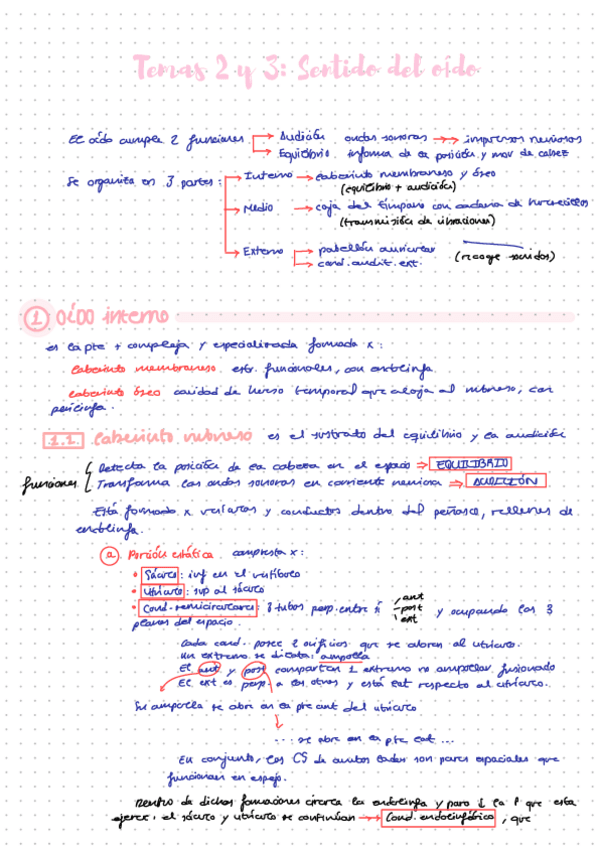 Temas 2 y 3: Sentido del oído
El oído cumple 2 funciones → Audición ondas sonoras →→ impulsos nerviosos
→ Equilibrio informa de la posición y mov de cabez
Se organiza en 3 partes: → Interno → laberinto membranoso y óseo
(equilibrio + audición)
→ Medio → caja del tímpano con cadena de huesecillos
(transmisión de vibraciones)
→ Externo → pabellón auricular
→ cond. audit. ext. (recoge sonidos)
① OÍDO interno
es la pte + compleja y especializada formada x:
laberinto membranoso. estr. funcionales, con endolinfa.
laberinto óseo cavidad de hueso temporal que aloja al mbnoso, con
perilinfa.
1.1. laberinto mbnoso es el sustrato del equilibrio y la audición
funciones { Detecta la posición de la cabeza en el espacio → EQUILIBRIO
Transforma las ondas sonoras en corriente nerviosa → AUDICIÓN
Está formado x vesículas y conductos dentro del peñasco, rellenos de
endolinfa.
ⓐ Porción estática compuesta x:
• Sáculo: inf en el vestíbulo
• Utrículo: sup al sáculo
• Cond. semicirculares: 3 tubos perp. entre sí ant
post
ext y ocupando los 3
planos del espacio.
Cada cond. posee 2 orificios que se abren al utrículo.
Un extremo se dilata: ampolla
El ant y post comparten 1 extremo no ampollar fusionado
El ext es perp. a los otros y está lat respecto al utrículo.
Su ampolla se abre en la pte ant del utrículo
... se abre en la pte lat ...
En conjunto, los CS de ambos lados son pares espaciales que
funcionan en espejo.
Dentro de dichas formaciones circula la endolinfa y para ↓ la P que esta
ejerce, el sáculo y utrículo se continúan → Cond. endolinfático, que